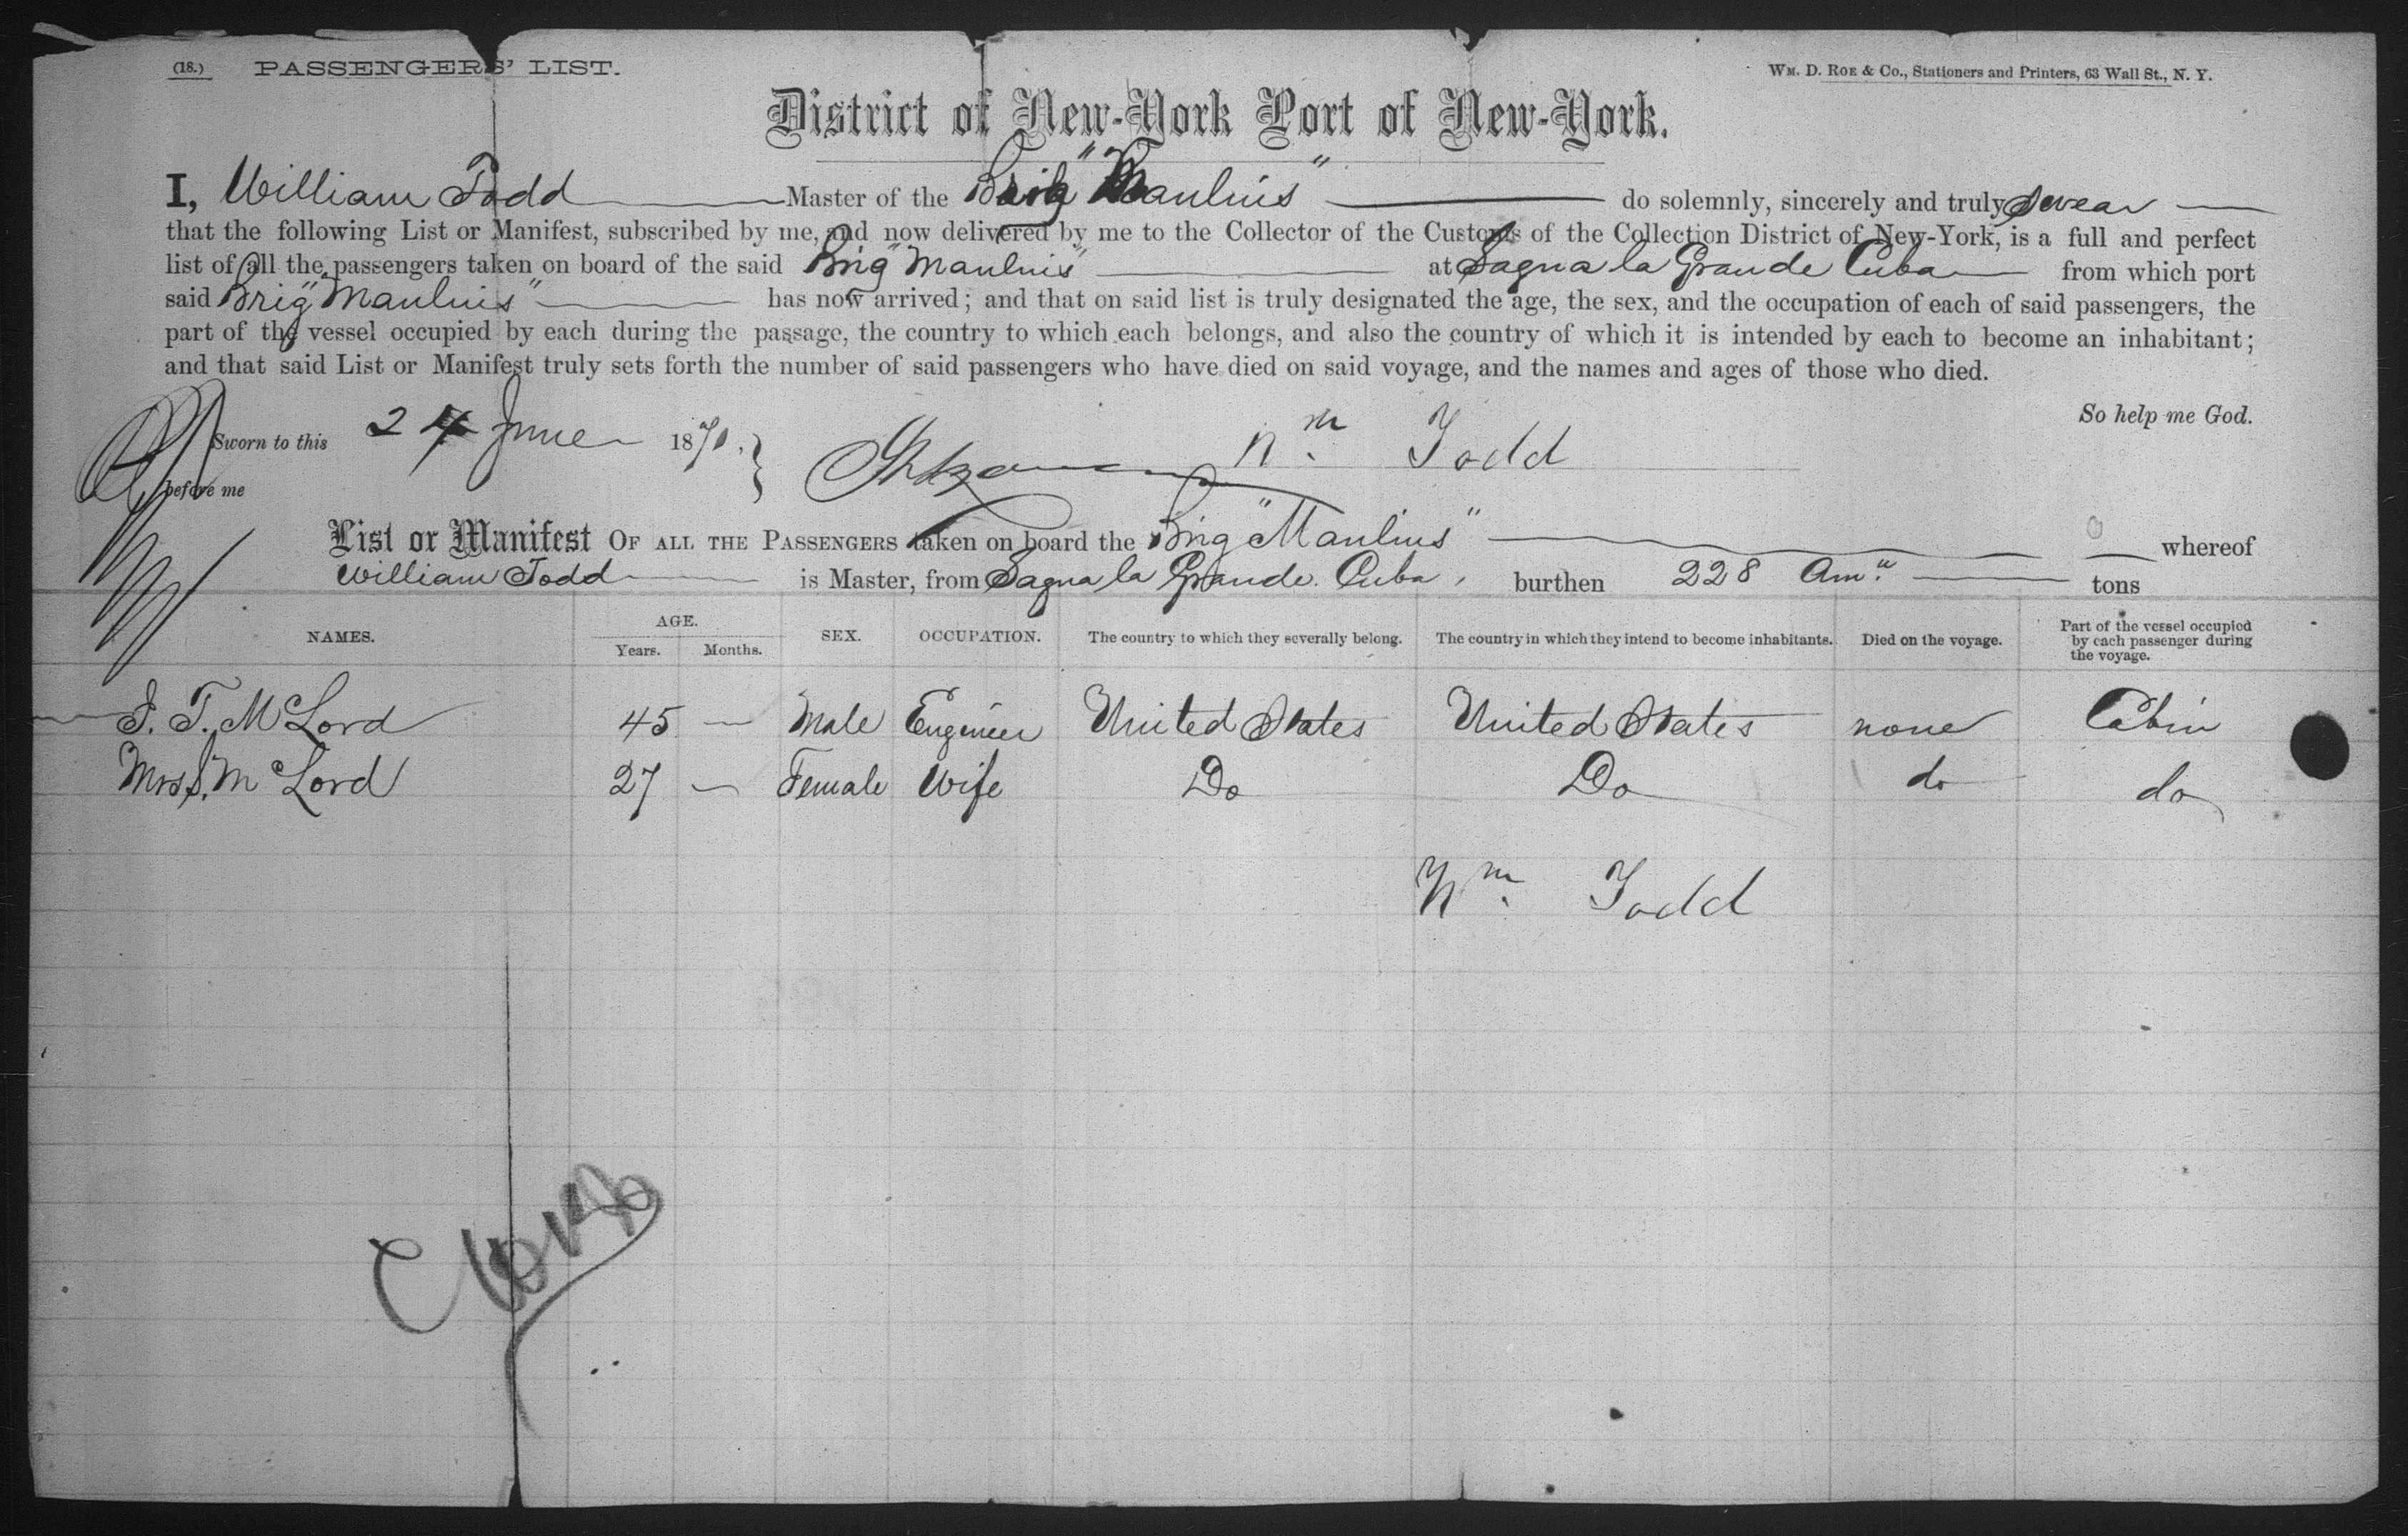 (18.) PASSENGERS' LIST.
WM. D. ROE & CO., Stationers and Printers, 63 Wall St., N. Y.
District of New-York Port of New-York.
I, William Todd Master of the Brig "Manlius" do solemnly, sincerely and truly swear
that the following List or Manifest, subscribed by me, and now delivered by me to the Collector of the Customs of the Collection District of New-York, is a full and perfect
list of all the passengers taken on board of the said Brig "Manlius" at Sagua la Grande Cuba from which port
said Brig "Manlius" has now arrived; and that on said list is truly designated the age, the sex, and the occupation of each of said passengers, the
part of the vessel occupied by each during the passage, the country to which each belongs, and also the country of which it is intended by each to become an inhabitant;
and that said List or Manifest truly sets forth the number of said passengers who have died on said voyage, and the names and ages of those who died.
So help me God.
Sworn to this 24 June 1870. } Wm. Todd
before me
List or Manifest OF ALL THE PASSENGERS taken on board the Brig "Manlius" whereof
William Todd is Master, from Sagua la Grande. Cuba, burthen 228 Amn. tons
NAMES. AGE. Years. Months. SEX. OCCUPATION. The country to which they severally belong. The country in which they intend to become inhabitants. Died on the voyage. Part of the vessel occupied by each passenger during the voyage.
J. T. M Lord 45 — Male Engineer United States United States none Cabin
Mrs J. M Lord 27 — Female Wife Do Do do do
Wm. Todd